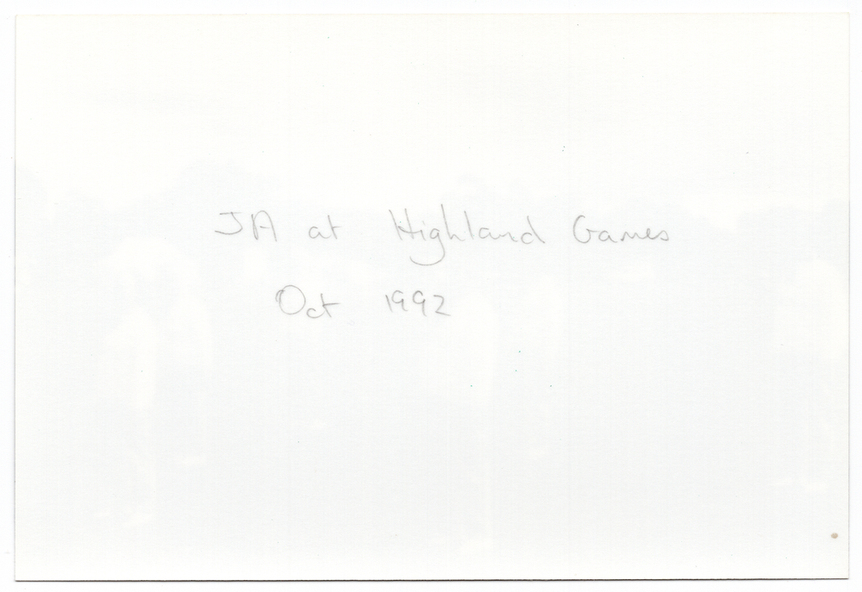 JA at Highland Games
Oct 1992